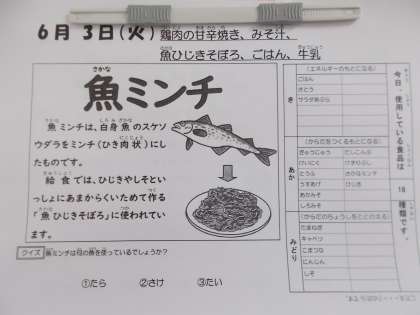 6月 3日(火) 鶏肉の甘辛焼き、みそ汁、
魚ひじきそぼろ、ごはん、牛乳
魚ミンチ
魚ミンチは、白身魚のスケソ
ウダラをミンチ(ひき肉状)にし
たものです。
給食では、ひじきやしそとい
っしょにあまからくいためて作る
「魚ひじきそぼろ」に使われてい
ます。
クイズ 魚ミンチは何の魚を使っているでしょうか?
①たら ②さけ ③たい
今日、使用している食品は
18
種類です。
(エネルギーのもとになる)
き
ごはん
さとう
サラダあぶら
(からだをつくるもとになる)
あか
ぎゅうにゅう だしこんぶ
けいにく けずりぶし
とうふ さかなミンチ
うすあげ ひじき
あかみそ
しろみそ
(からだのちょうしをととのえる)
みどり
たまねぎ
キャベツ
こまつな
にんじん
しそ